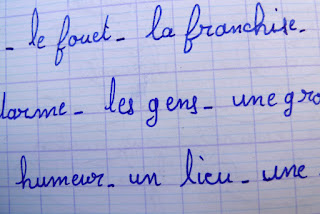 - le fouet - la franchise -
larme - les gens - une gro
humeur - un lieu - une